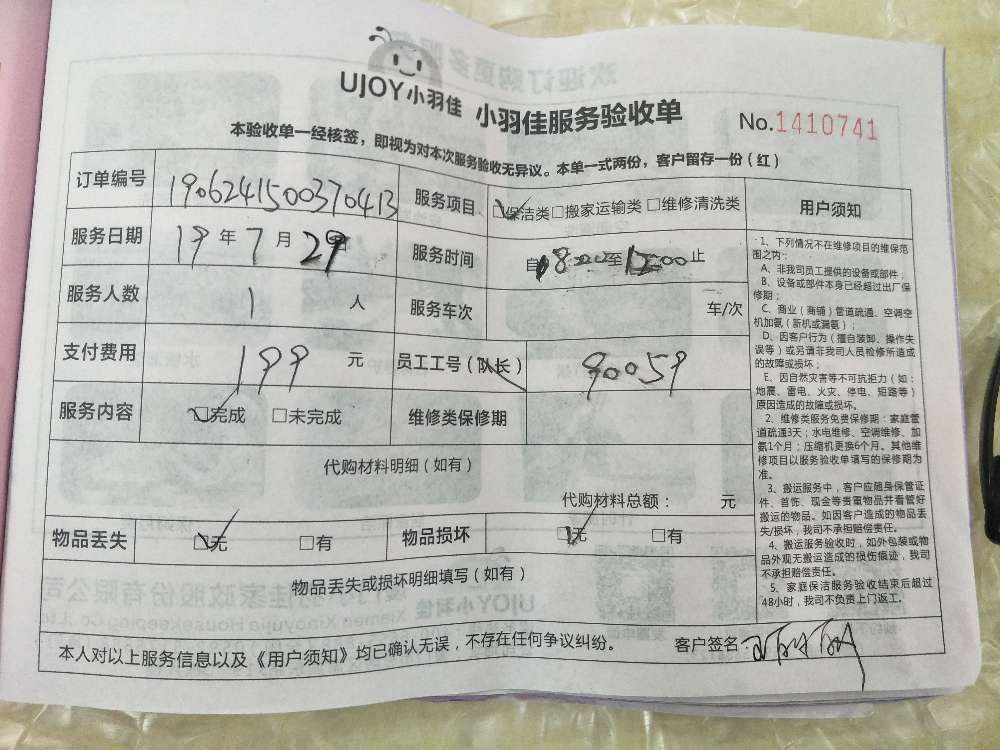 UJOY小羽佳 小羽佳服务验收单
No.1410741
本验收单一经核签，即视为对本次服务验收无异议。本单一式两份，客户留存一份（红）
订单编号 1906241500370413 服务项目 ☑保洁类□搬家运输类□维修清洗类
服务日期 19年7月29日 服务时间 自8:00至12:00止
服务人数 1人 服务车次 车/次
支付费用 199元 员工工号（队长） 90059
服务内容 ☑完成 □未完成 维修类保修期
代购材料明细（如有）
代购材料总额： 元
物品丢失 ☑无 □有 物品损坏 ☑无 □有
物品丢失或损坏明细填写（如有）
本人对以上服务信息以及《用户须知》均已确认无误，不存在任何争议纠纷。 客户签名：
用户须知
1、下列情况不在维修项目的维保范
围之内：
A、非我司员工提供的设备或部件；
B、设备或部件本身已经超过出厂保
修期；
C、商业（商铺）管道疏通、空调空
机加氨（新机或漏氨）；
D、因客户行为（擅自装卸、操作失
误等）或另请非我司人员检修所造成
的故障或损坏；
E、因自然灾害等不可抗拒力（如：
地震、雷电、火灾、停电、短路等）
原因造成的故障或损坏。
2、维修类服务免费保修期：家庭管
道疏通3天；水电维修、空调维修、加
氨1个月；压缩机更换6个月。其他维
修项目以服务验收单填写的保修期为
准。
3、搬运服务中，客户应随身保管证
件、首饰、现金等贵重物品并看管好
搬运的物品。如因客户造成的物品丢
失/损坏，我司不承担赔偿责任。
4、搬运服务验收时，如外包装或物
品外观无搬运造成的损伤痕迹，我司
不承担赔偿责任。
5、家庭保洁服务验收结束后超过
48小时，我司不负责上门返工。